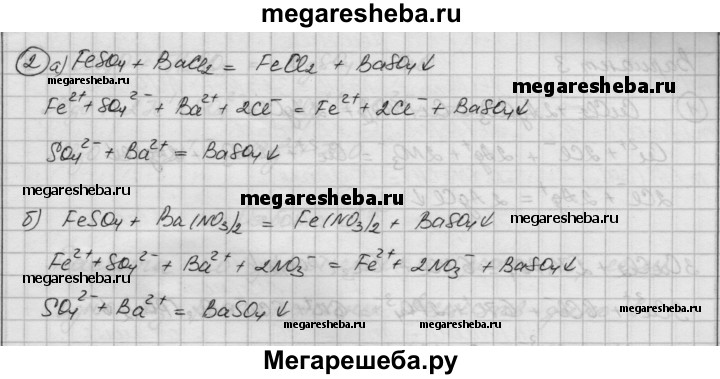 megaresheba.ru
2 а) FeSO₄ + BaCl₂ = FeCl₂ + BaSO₄↓
megaresheba.ru
megaresheba.ru
Fe²⁺ + SO₄²⁻ + Ba²⁺ + 2Cl⁻ = Fe²⁺ + 2Cl⁻ + BaSO₄↓
megaresheba.ru
SO₄²⁻ + Ba²⁺ = BaSO₄↓
megaresheba.ru
megaresheba.ru
б) FeSO₄ + Ba(NO₃)₂ = Fe(NO₃)₂ + BaSO₄↓
megaresheba.ru
Fe²⁺ + SO₄²⁻ + Ba²⁺ + 2NO₃⁻ = Fe²⁺ + 2NO₃⁻ + BaSO₄↓
megaresheba.ru
megaresheba.ru
SO₄²⁻ + Ba²⁺ = BaSO₄↓
megaresheba.ru
megaresheba.ru
Мегарешеба.ру